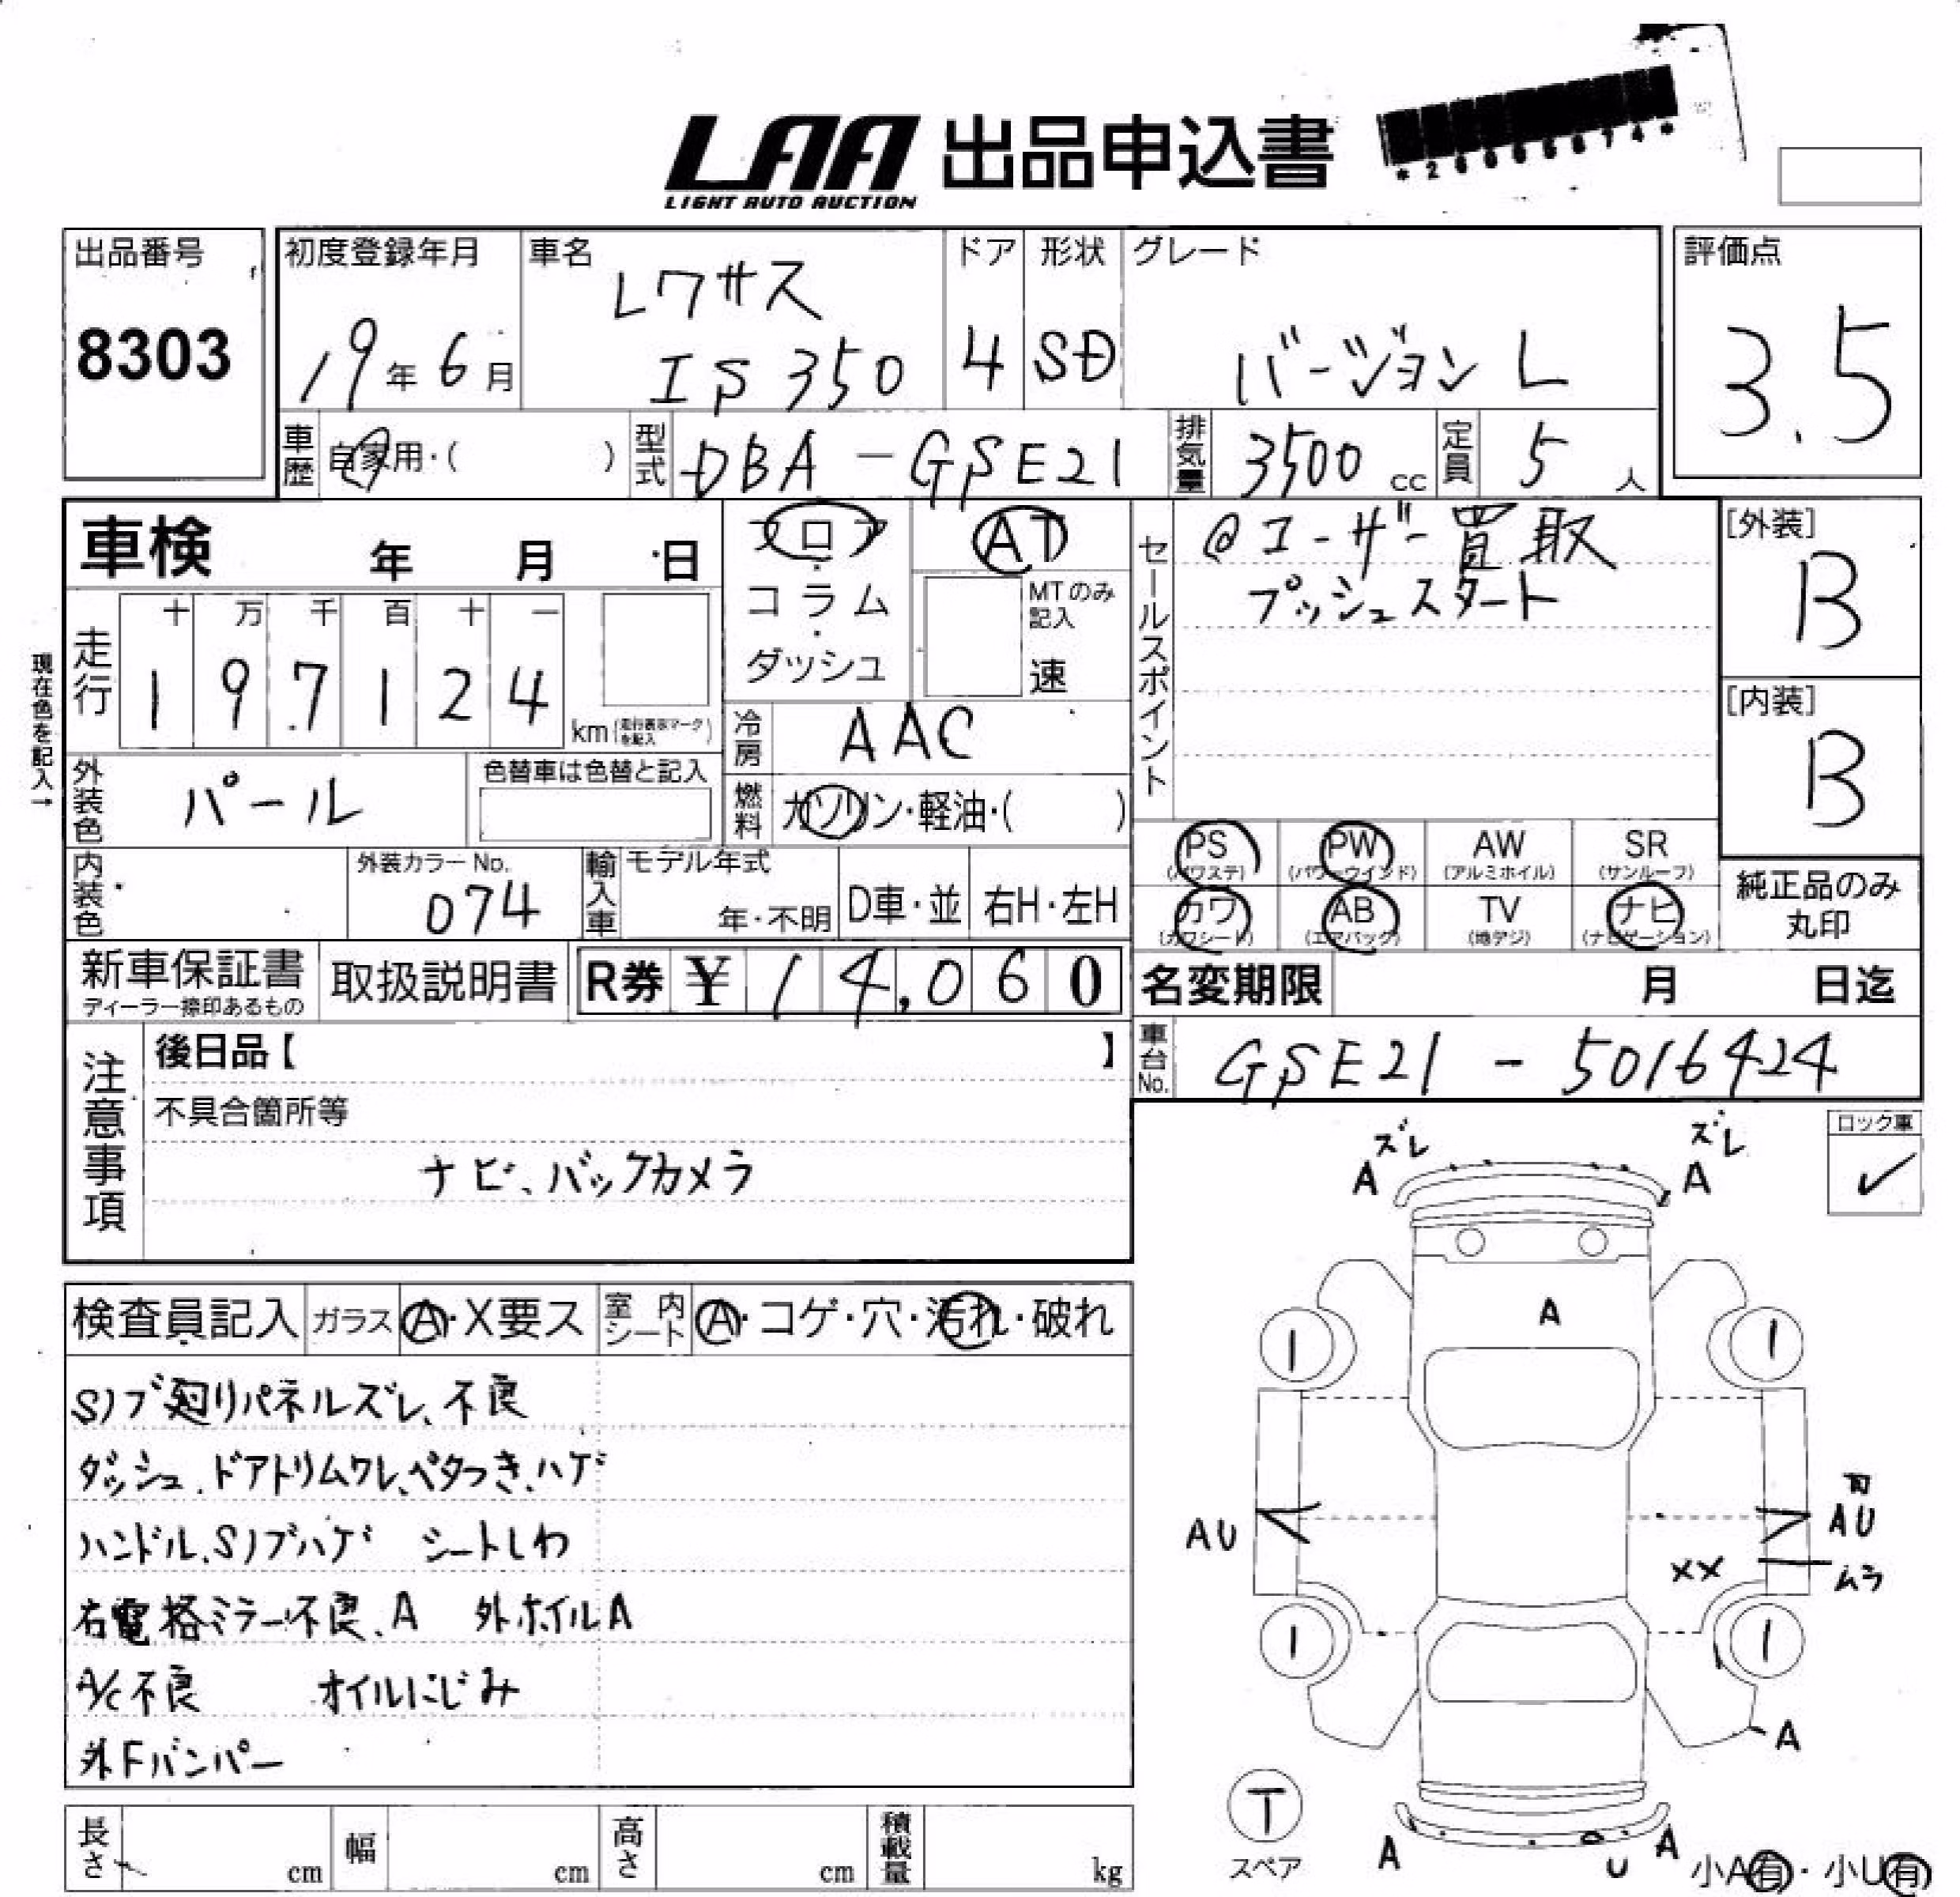 LAA 出品申込書
LIGHT AUTO AUCTION
出品番号
8303
初度登録年月
19年6月
車名
レクサス
IS350
ドア
4
形状
SD
グレード
バージョンL
評価点
3.5
車歴 自家用・( )
型式 DBA-GSE21
排気量 3500cc
定員 5人
車検 年 月 日
フロア・コラム・ダッシュ
AT
MTのみ記入
速
セールスポイント
@ユーザー買取
プッシュスタート
[外装]
B
[内装]
B
現在色を記入→
走行
十 万 千 百 十 一
1 9 7 1 2 4
km(走行表示マークを記入)
冷房 AAC
外装色 パール
色替車は色替と記入
燃料 ガソリン・軽油・( )
PS AW SR
PW
(パワステ) (パワーウインド) (アルミホイル) (サンルーフ)
カワ AB TV ナビ
(カワシート) (エアバッグ) (地デジ) (ナビゲーション)
純正品のみ
丸印
内装色
外装カラーNo.
074
輸入車
モデル年式
年・不明
D車・並
右H・左H
新車保証書
ディーラー捺印あるもの
取扱説明書
R券 ¥14,060
名変期限 月 日迄
車台No. GSE21-5016424
注意事項
後日品【 】
不具合箇所等
ナビ、バックカメラ
ロック車
✓
検査員記入 ガラス A・X要ス 室内シート A・コゲ・穴・汚れ・破れ
Sノブ廻りパネルズレ、不良
ダッシュ、ドアトリムワレ、ベタつき、ハゲ
ハンドル、Sノブハゲ シートしわ
右電格ミラー不良、A 外ホイルA
A/C不良 オイルにじみ
外Fバンパー
ズレ ズレ
A A
A
1 1
AU
AU
XX
ムラ
1 1
A
T
スペア
A U A
小A有・小U有
長さ cm 幅 cm 高さ cm 積載量 kg